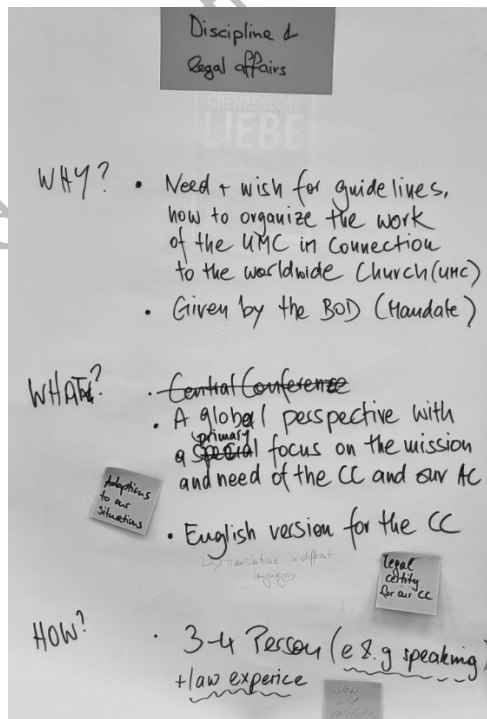 Discipline &
legal affairs
GRENZENLOSE
LIEBE
WHY? • Need + wish for guidelines,
how to organize the work
of the UMC in Connection
to the worldwide Church (UMC)
• Given by the BOD (Mandate)
WHAT? • Central Conference
• A global perspective with
primary
a special focus on the mission
and need of the CC and our AC
Adaptions
to our
situations
• English version for the CC
↳ translations in different
languages
legal
certity
for our CC
HOW? • 3-4 Person (e &.g speaking)
+ law experice
slow
and